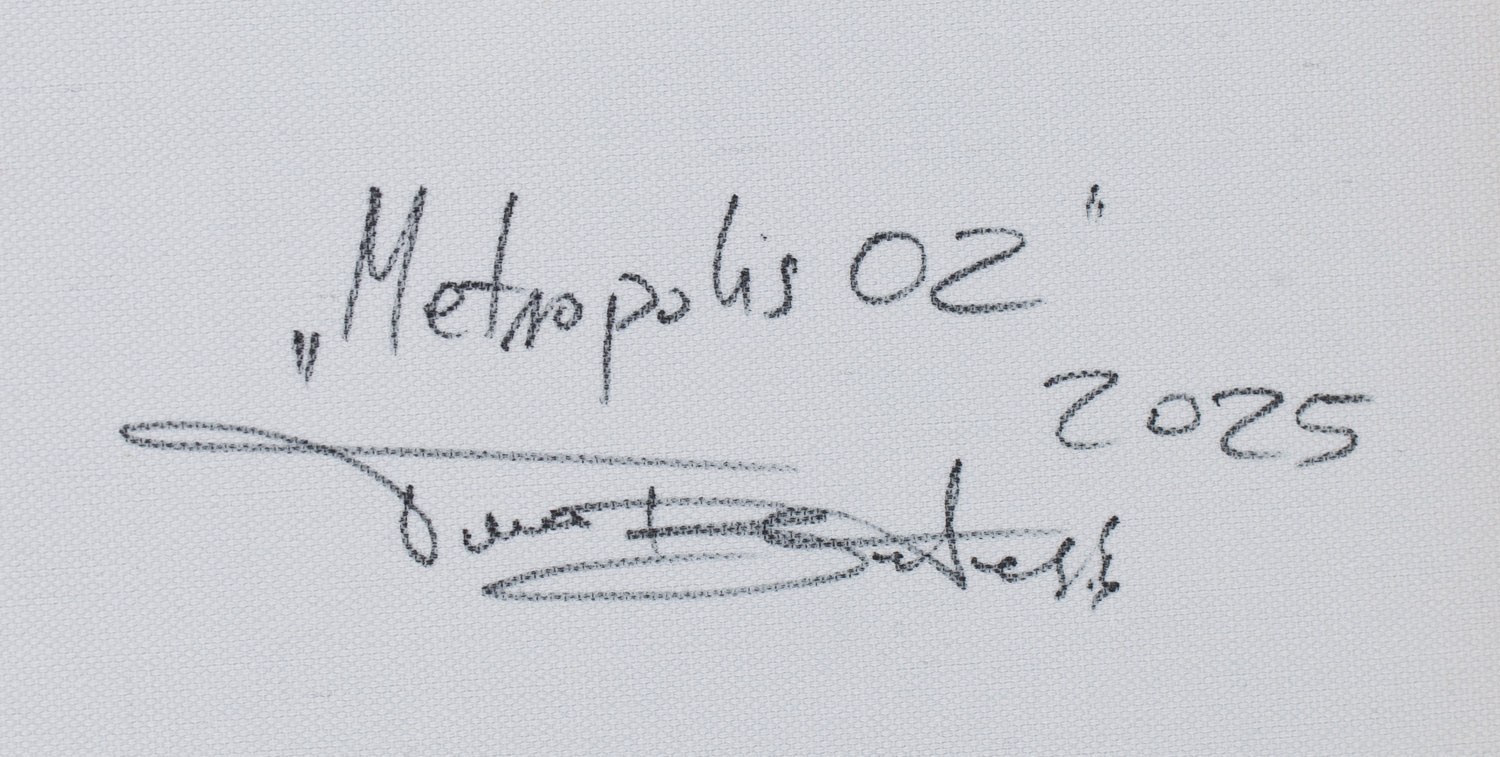 „Metropolis 02"
2025